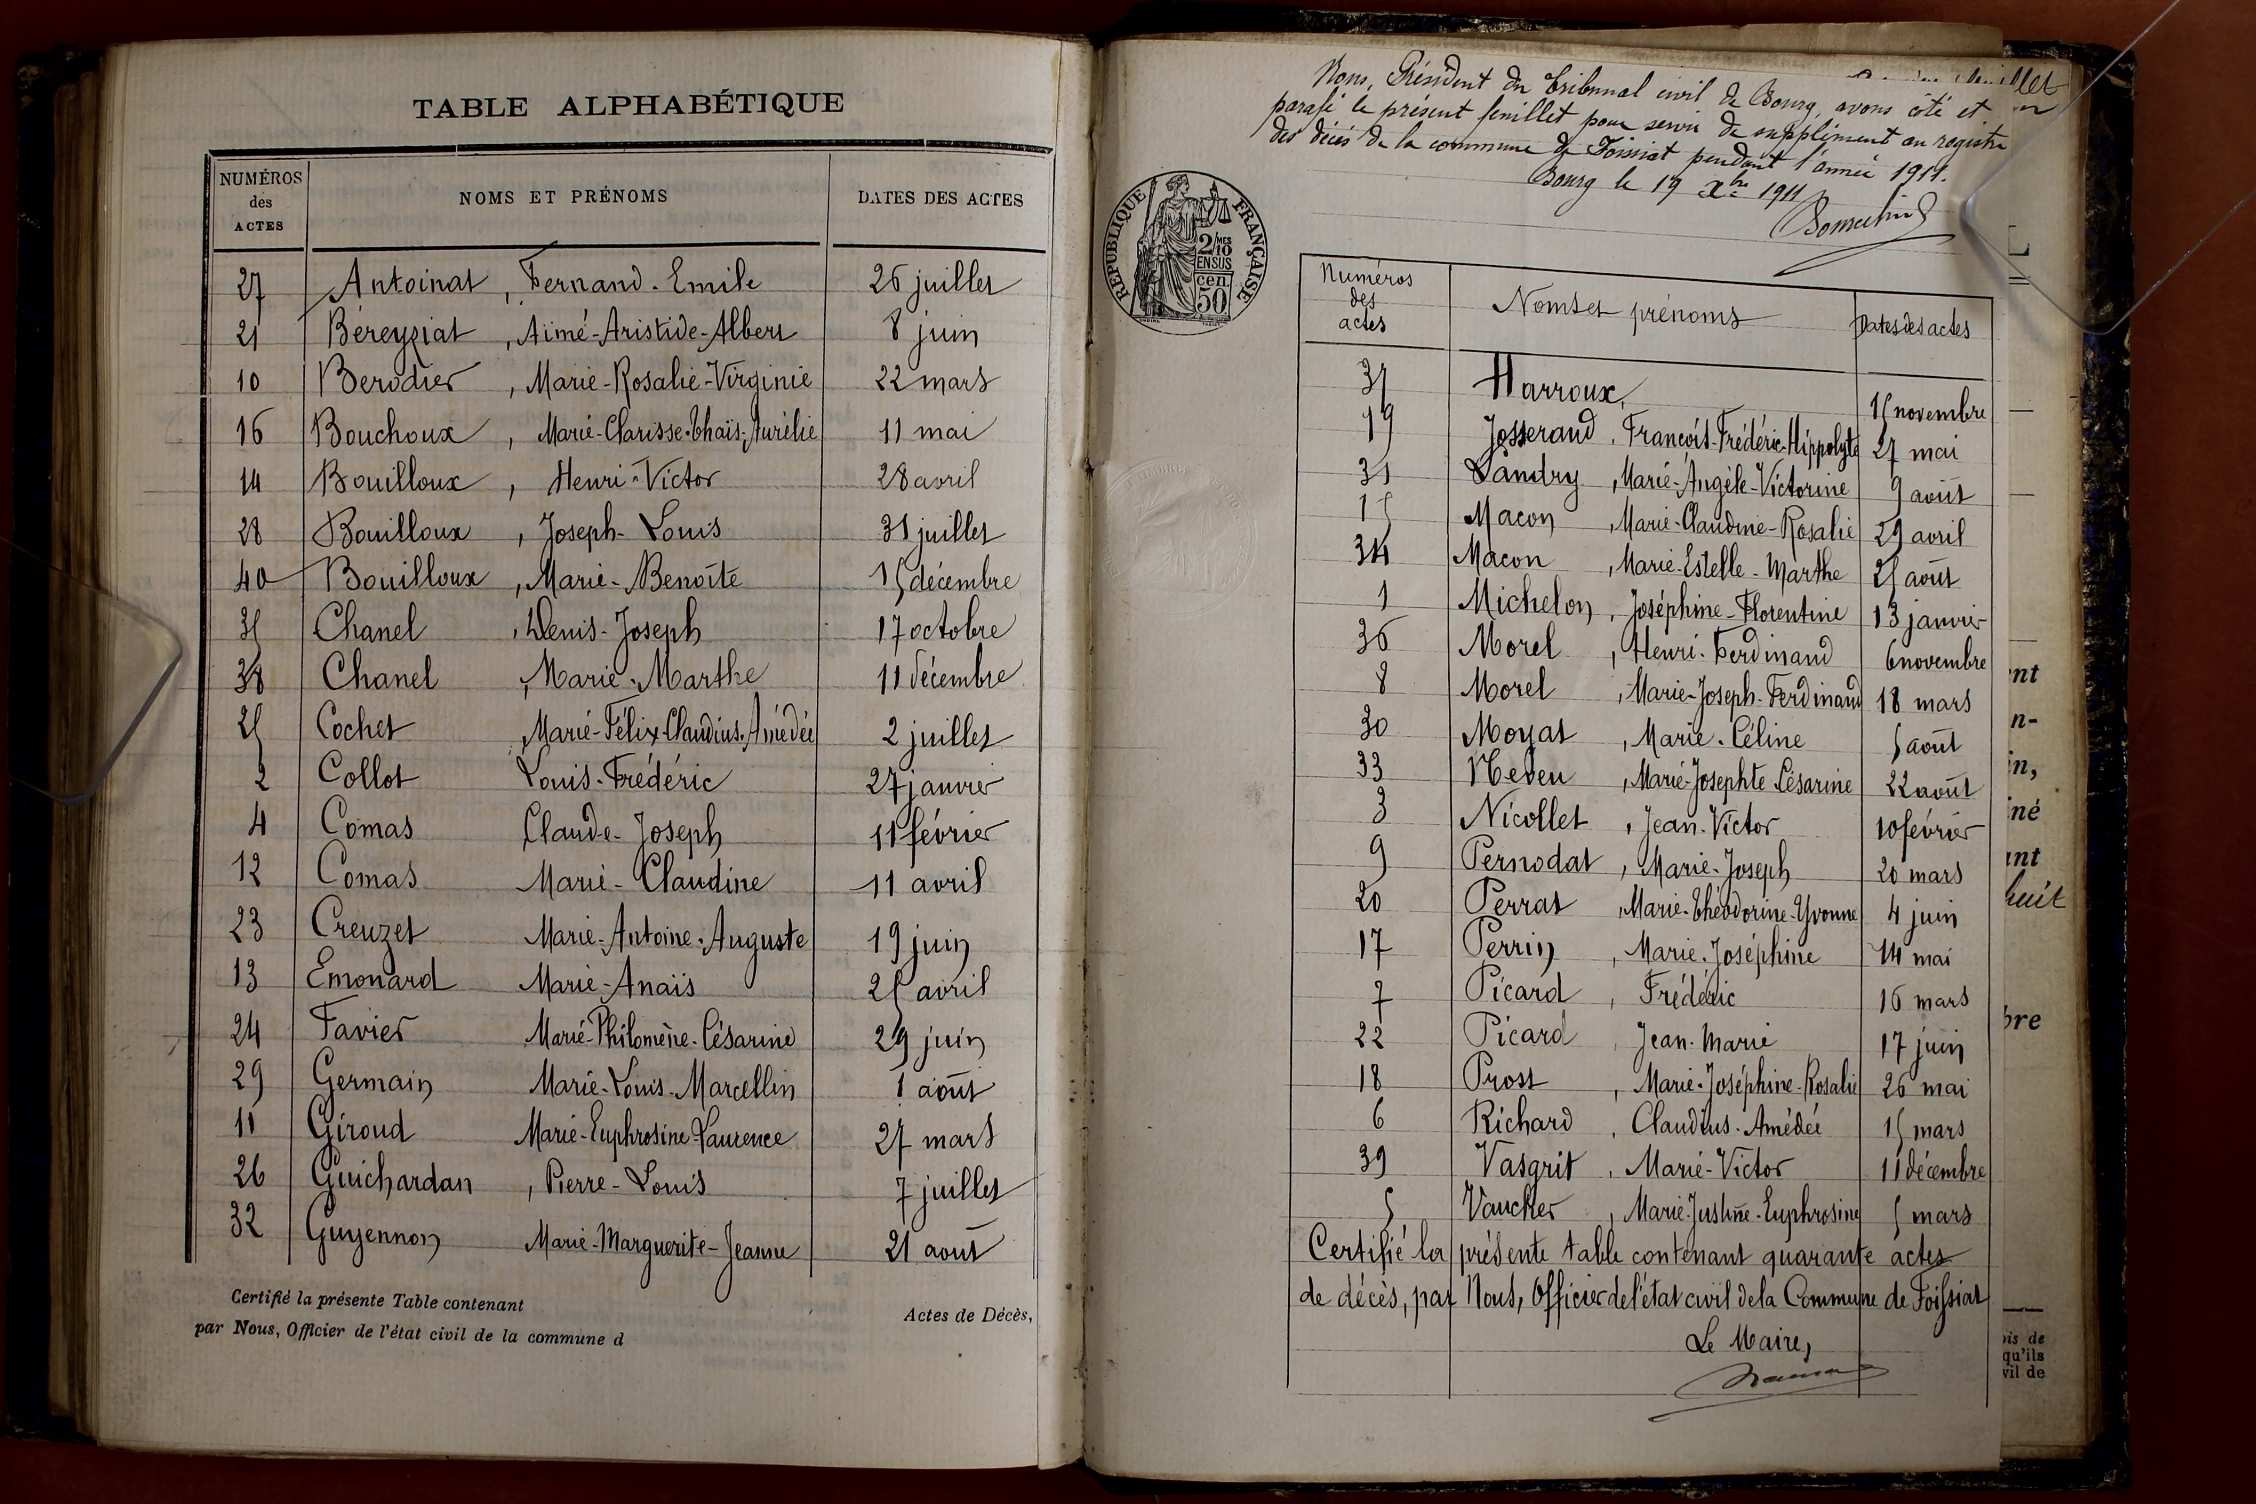 TABLE ALPHABÉTIQUE
NUMÉROS des ACTES NOMS ET PRÉNOMS DATES DES ACTES
27 Antoinat, Fernand-Emile 26 juillet
21 Béreyziat, Aimé-Aristide-Albert 8 juin
10 Berodier, Marie-Rosalie-Virginie 22 mars
16 Bouchoux, Marie-Clarisse-Thaïs-Aurélie 11 mai
14 Bouilloux, Henri-Victor 28 avril
28 Bouilloux, Joseph-Louis 31 juillet
40 Bouilloux, Marie-Benoîte 15 décembre
35 Chanel, Denis-Joseph 17 octobre
38 Chanel, Marie-Marthe 11 décembre
25 Cochet, Marie-Félix-Claudius-Amédée 2 juillet
2 Collot Louis-Frédéric 27 janvier
4 Comas Claude-Joseph 11 février
12 Comas Marie-Claudine 11 avril
23 Creuzet Marie-Antoine-Auguste 19 juin
13 Emonard Marie-Anaïs 25 avril
24 Favier Marie-Philomène-Césarine 29 juin
29 Germain Marie-Louis-Marcellin 1 août
11 Giroud Marie-Euphrosine-Laurence 27 mars
26 Guichardan, Pierre-Louis 7 juillet
32 Guyennon Marie-Marguerite-Jeanne 21 août
Certifié la présente Table contenant Actes de Décès,
par Nous, Officier de l'état civil de la commune d
Nous, Président du Tribunal civil de Bourg, avons côté et
parafé le présent feuillet pour servir de supplément au registre
des décès de la commune de Foissiat pendant l'année 1911.
Bourg le 19 Xbre 1911
RÉPUBLIQUE FRANÇAISE
2/10MES
EN SUS
50 cen.
Numéros des actes Noms et prénoms Dates des actes
37 Harroux, 15 novembre
19 Josserand, François-Frédéric-Hippolyte 27 mai
31 Landry, Marie-Angèle-Victorine 9 août
15 Macon, Marie-Claudine-Rosalie 29 avril
34 Macon, Marie-Estelle-Marthe 25 août
1 Michelon, Joséphine-Florentine 13 janvier
36 Morel, Henri-Ferdinand 6 novembre
8 Morel, Marie-Joseph-Ferdinand 18 mars
30 Moyat, Marie-Céline 5 août
33 Neveu, Marie-Josephte Césarine 22 août
3 Nicollet, Jean-Victor 10 février
9 Pernodat, Marie-Joseph 20 mars
20 Perrat, Marie-Théodorine-Yvonne 4 juin
17 Perrin, Marie-Joséphine 14 mai
7 Picard, Frédéric 16 mars
22 Picard, Jean-Marie 17 juin
18 Prost, Marie-Joséphine-Rosalie 26 mai
6 Richard, Claudius-Amédée 15 mars
39 Vasgrit, Marie-Victor 11 décembre
5 Vaucher, Marie-Justine-Euphrosine 5 mars
Certifié la présente table contenant quarante actes
de décès, par Nous, Officier de l'état civil de la Commune de Foissiat
Le Maire,
huit